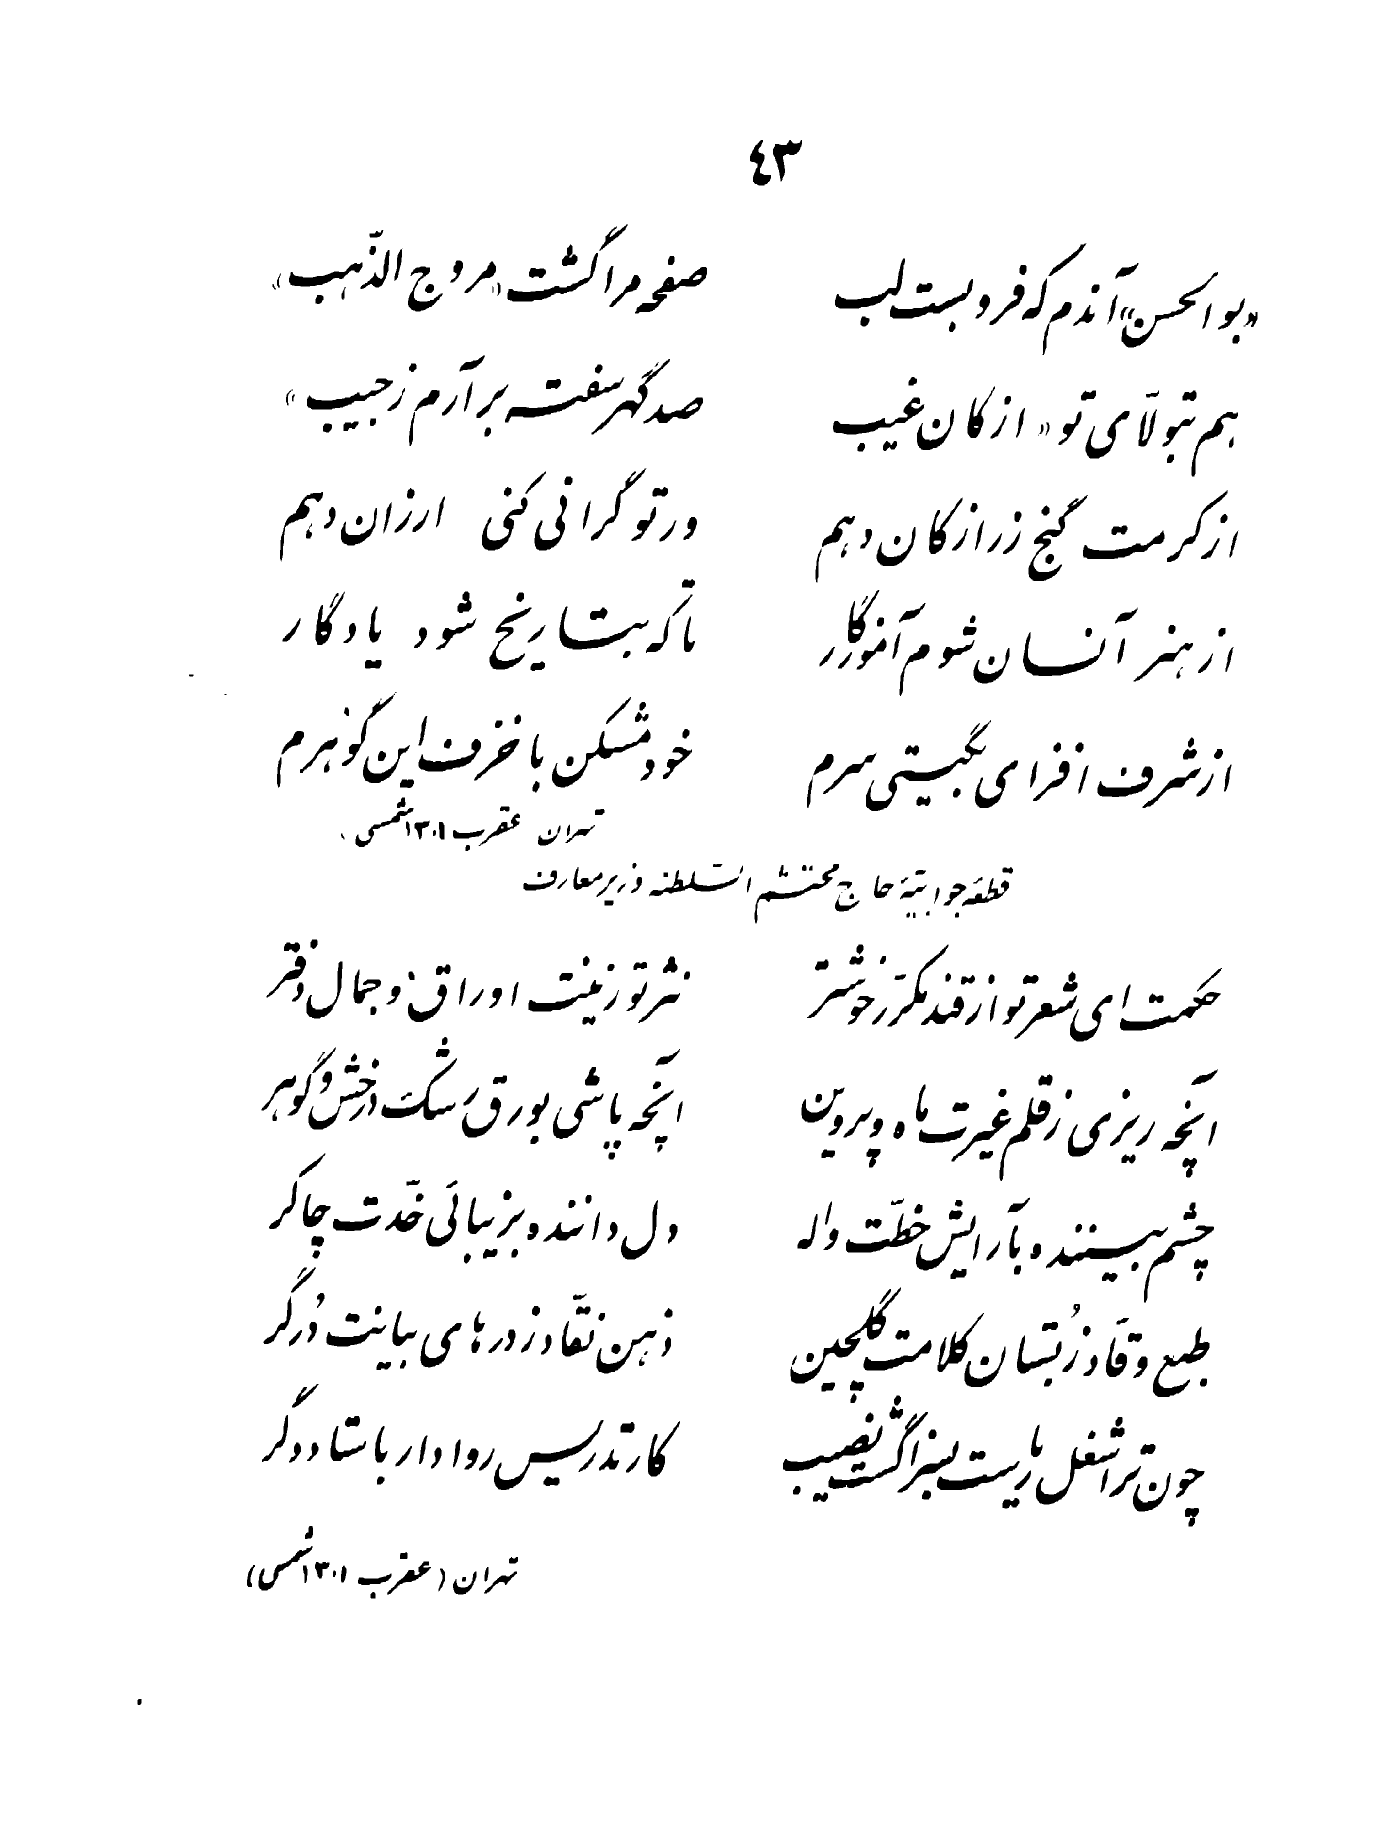 ٤٣
«بوالحسن» آندم که فرو بست لب صفحه مرا گشت «مروج الذّهب»
هم بتولّای تو «از کان غیب صد گهر سفته برآرم ز جیب»
از کرمت گنج زر از کان دهم ور تو گرانی کنی ارزان دهم
از هنر آنسان شوم آموزگار تا که بتاریخ شود یادگار
از شرف افزای بگیتی سرم خود مشکن با خزف این گوهرم
تهران عقرب ۱۳۰۱ شمسی
قطعهٔ جوابیّهٔ حاج محتشم السّلطنه وزیر معارف
حکمت ای شعر تو از قند مکرّر خوشتر نثر تو زینت اوراق و جمال دفتر
آنچه ریزی ز قلم غیرت ماه و پروین آنچه پاشی بورق رشک درخش و گوهر
چشم بیننده بآرایش خطّت واله دل داننده بزیبائی خدّت چاکر
طبع وقّاد ز بُستان کلامت گلچین ذهن نقّاد ز درهای بیانت دُرگر
چون ترا شغل ریاست بسزا گشت نصیب کار تدریس روا دار باستاد دگر
تهران (عقرب ۱۳۰۱ شمسی)